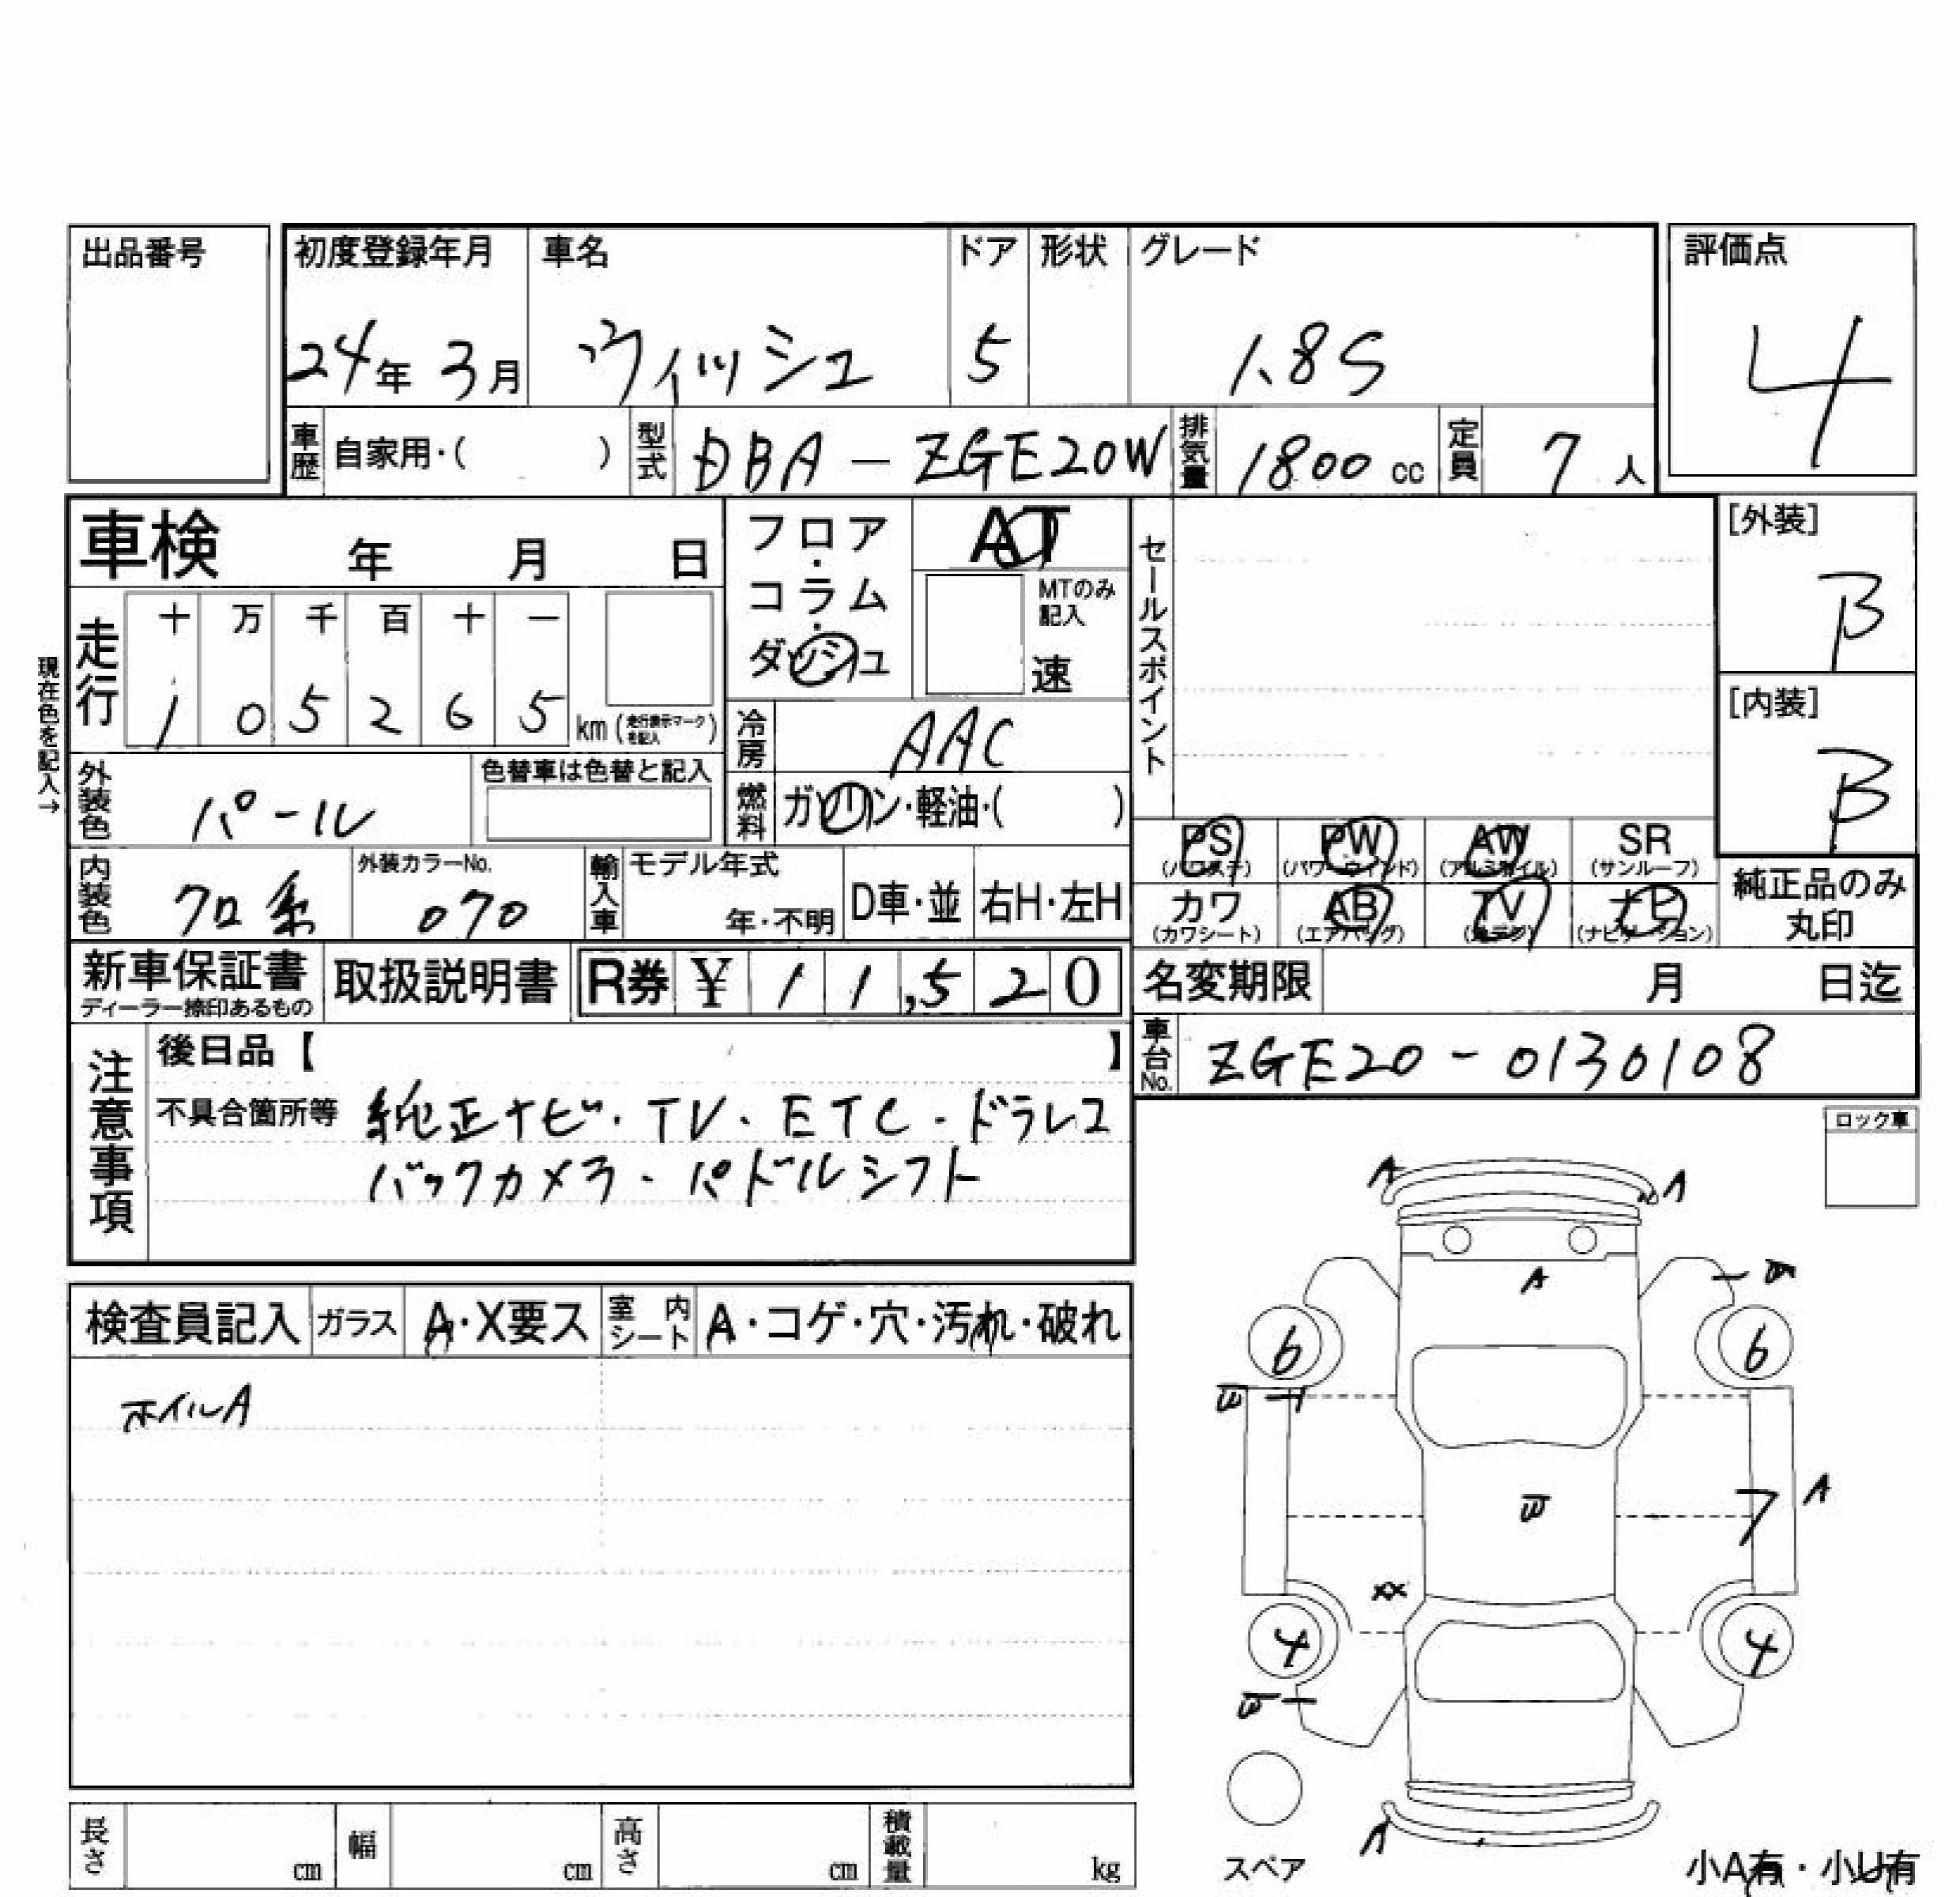 出品番号 初度登録年月 車名 ドア 形状 グレード 評価点
24年 3月 ヴィッシュ 5 1.8S 4
車歴 自家用・( ) 型式 DBA-ZGE20W 排気量 1800 cc 定員 7 人
車検 年 月 日 フロア・コラム・ダッシュ AT セールスポイント [外装]
MTのみ記入 速 B
現在色を記入→ 走行 十 万 千 百 十 一
1 0 5 2 6 5 km (走行表示マークを記入) [内装]
冷房 AAC B
外装色 パール 色替車は色替と記入 燃料 ガソリン・軽油・( )
PS (パワステ) PW (パワーウィンド) AW (アルミホイル) SR (サンルーフ)
内装色 クロ系 外装カラーNo. 070 輸入車 モデル年式 年・不明 D車・並 右H・左H
カワ (カワシート) AB (エアバッグ) TV (地デジ) ナビ (ナビゲーション) 純正品のみ丸印
新車保証書 ディーラー捺印あるもの 取扱説明書 R券 ¥ 1 1,5 2 0 名変期限 月 日迄
注意事項 後日品【 】 車台No. ZGE20-0130108
不具合箇所等 純正ナビ・TV・ETC・ドラレコ
バックカメラ・パドルシフト
ロック車
A A
A
検査員記入 ガラス A・X要ス 室内シート A・コゲ・穴・汚れ・破れ
6 6
ホイルA
A
7
XX
4 4
A
スペア
長さ cm 幅 cm 高さ cm 積載量 kg
小A有・小U有